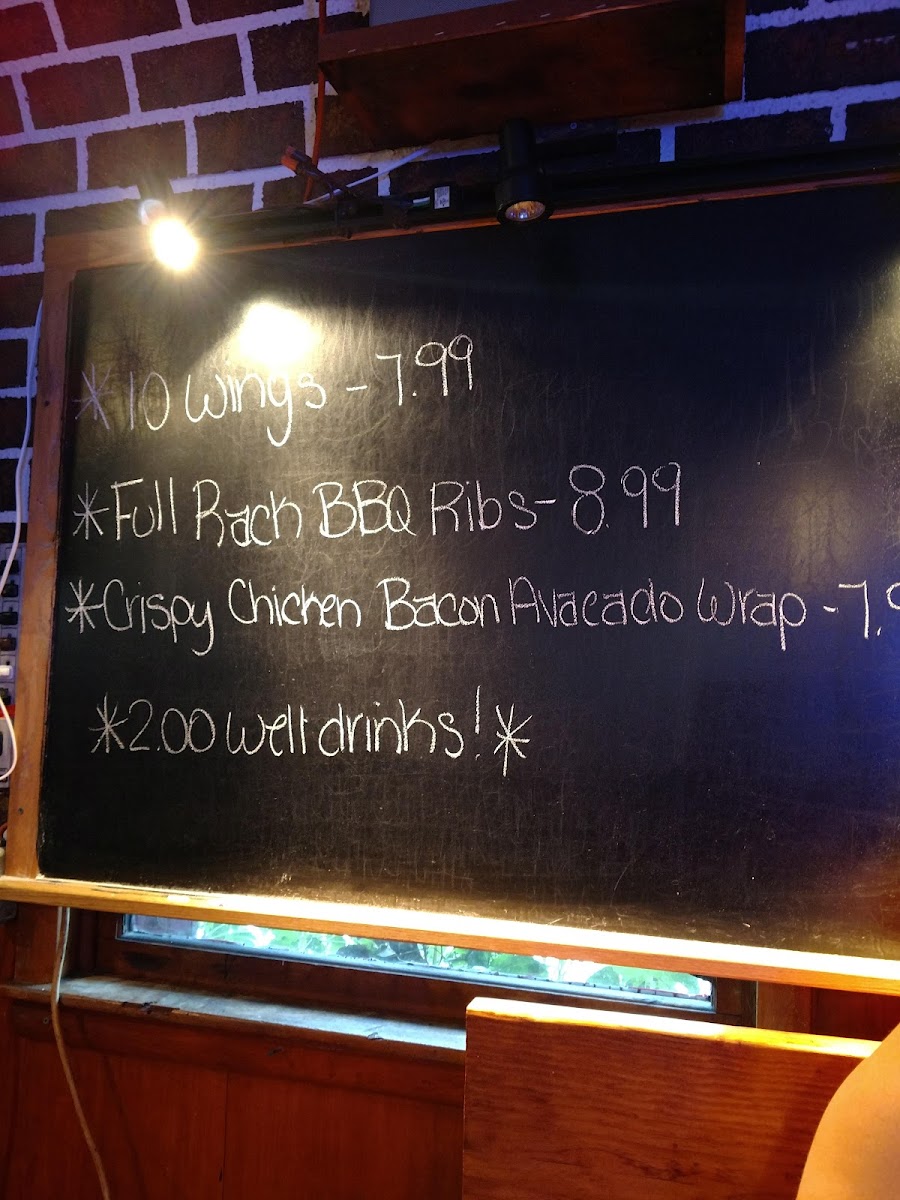 *10 wings - 7.99
*Full Rack BBQ Ribs - 8.99
*Crispy Chicken Bacon Avacado Wrap - 7.9
*2.00 well drinks!*